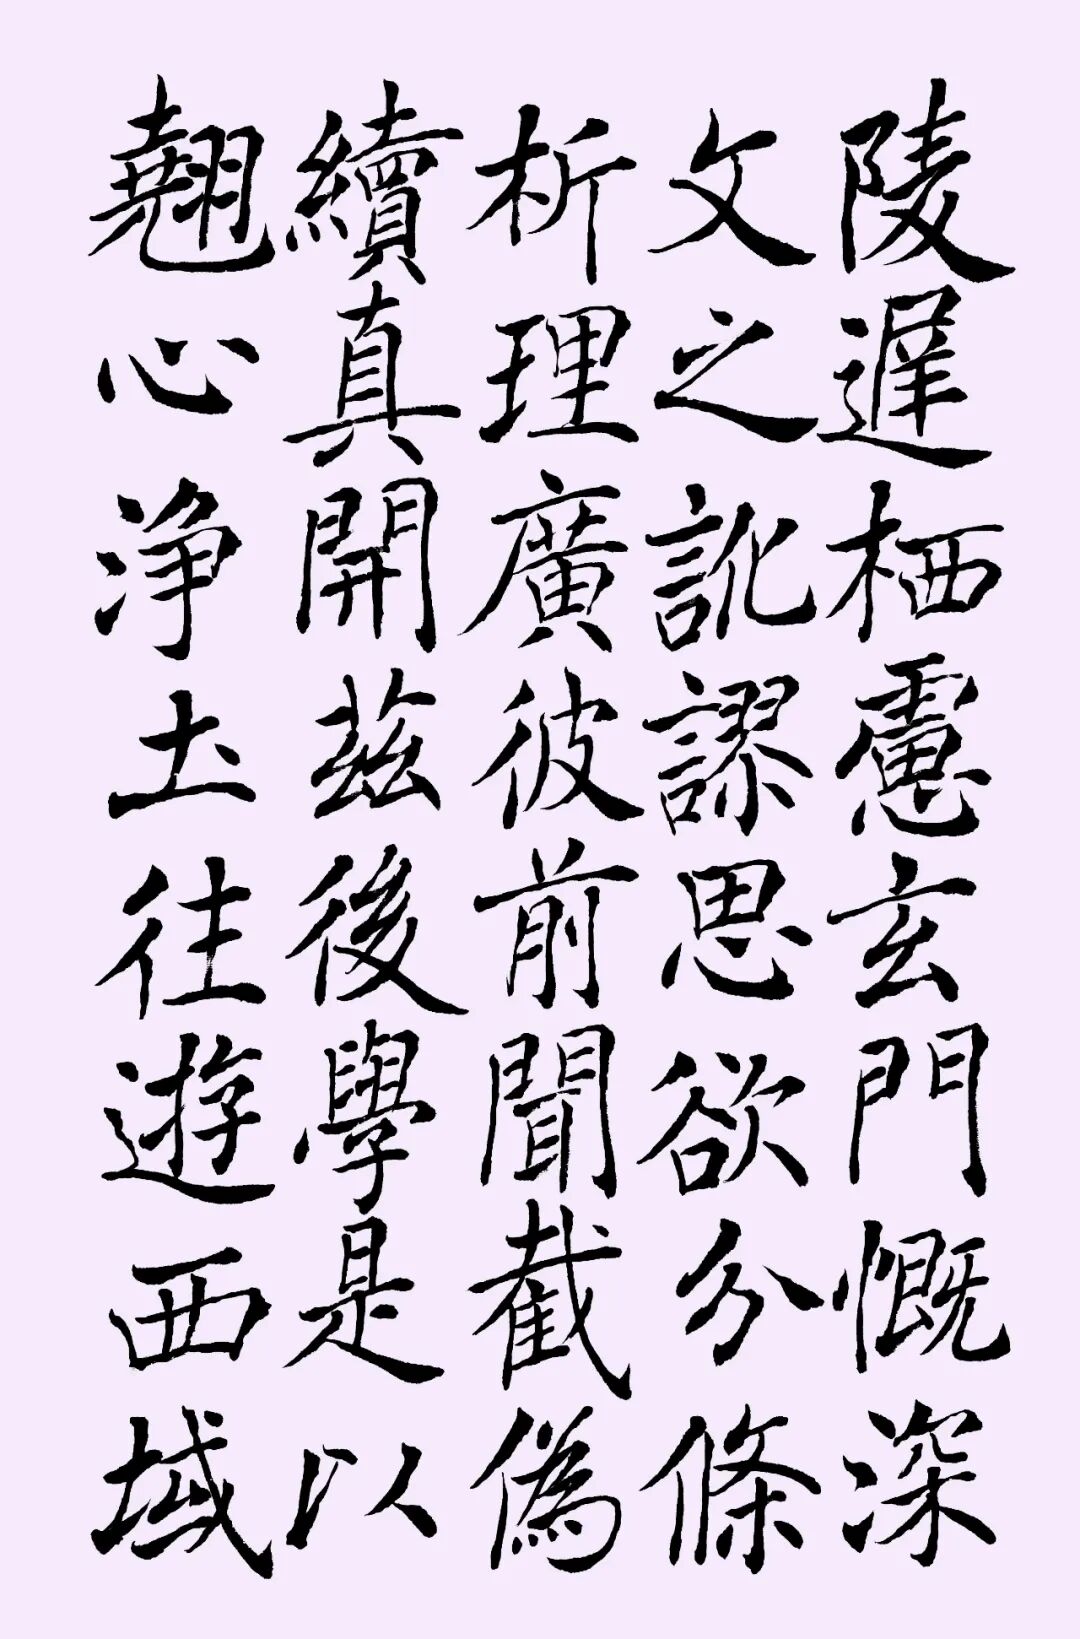 陵遲栖慮玄門慨深
文之訛謬思欲分條
析理廣彼前聞截偽
續真開茲後學是以
翹心淨土往遊西域